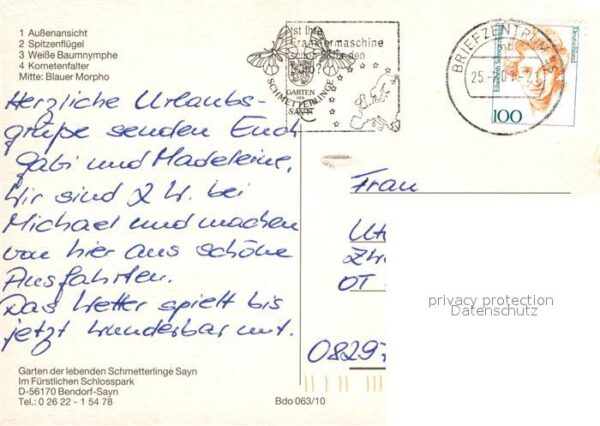 1 Außenansicht
2 Spitzenflügel
3 Weiße Baumnymphe
4 Kometenfalter
Mitte: Blauer Morpho
Ist Ihre
Frankiermaschine
GARTEN
SCHMETTERLINGE
SAYN
BRIEFZENTRUM
Deutschland
100
Herzliche Urlaubs-
grüße senden Euch
Gabi und Madeleine,
Wir sind 2 W. bei
Michael und machen
von hier aus schöne
Ausfahrten.
Das Wetter spielt bis
jetzt wunderbar mit.
Frau
OT
0829
privacy protection
Datenschutz
Garten der lebenden Schmetterlinge Sayn
Im Fürstlichen Schlosspark
D-56170 Bendorf-Sayn
Tel.: 0 26 22 - 1 54 78
Bdo 063/10